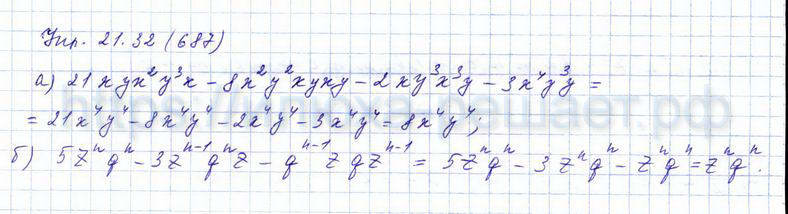 Упр. 21.32 (687)
а) 21xyx²y³x − 8x²y²xyxy − 2xy³x³y − 3x⁴y³y =
= 21x⁴y⁴ − 8x⁴y⁴ − 2x⁴y⁴ − 3x⁴y⁴ = 8x⁴y⁴;
б) 5zⁿqⁿ − 3zⁿ⁻¹qⁿz − qⁿ⁻¹zqzⁿ⁻¹ = 5zⁿqⁿ − 3zⁿqⁿ − zⁿqⁿ = zⁿqⁿ.